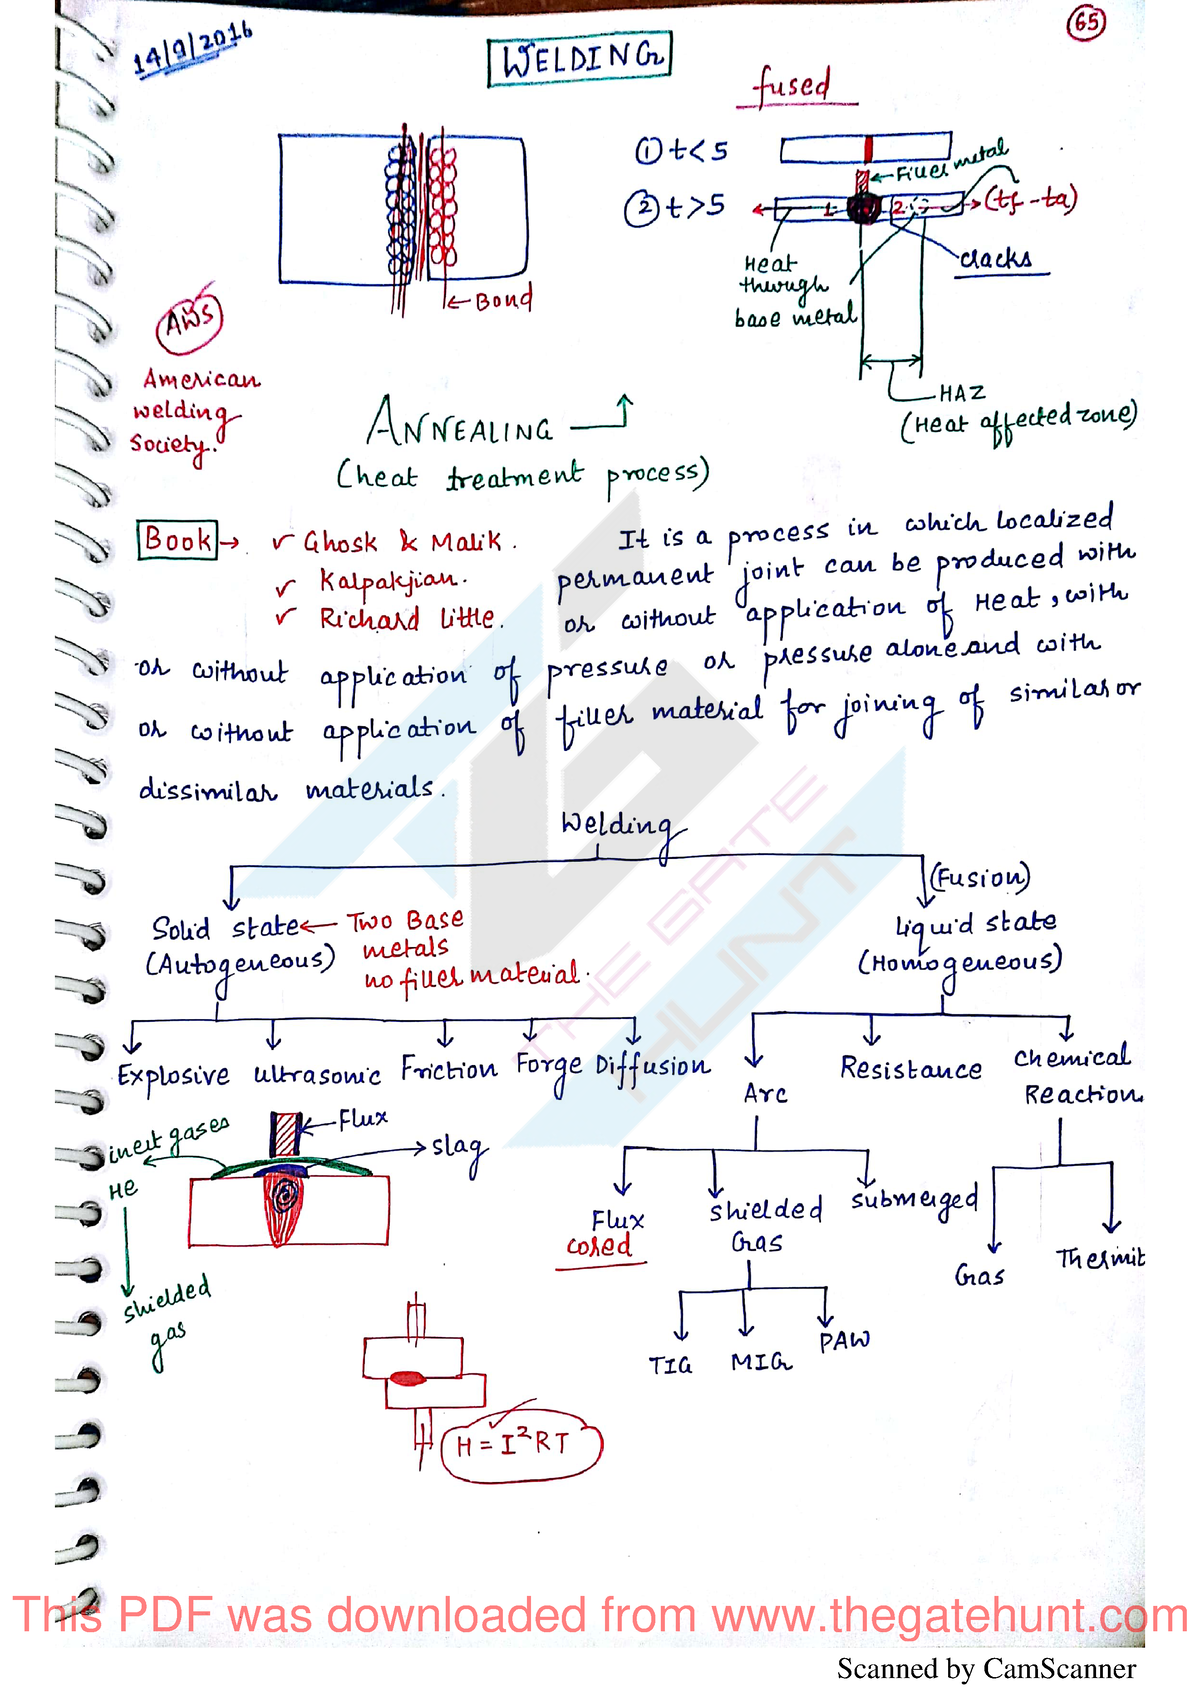 14/9/2016
65
WELDING
fused
① t < 5
Filler metal
② t > 5
1
2
(tf - ta)
Heat
through
base metal
cracks
Bond
HAZ
(Heat affected zone)
AWS
American
welding
Society.
ANNEALING
(heat treatment process)
Book → ✓ Ghosk & Malik.
✓ Kalpakjian.
✓ Richard Little.
It is a process in which localized
permanent joint can be produced with
or without application of Heat, with
or without application of pressure or pressure alone and with
or without application of filler material for joining of similar or
dissimilar materials.
Welding
Solid state ← Two Base
(Autogeneous) metals
no filler material.
(Fusion)
Liquid state
(Homogeneous)
Explosive ultrasonic Friction Forge Diffusion
Arc
Resistance
Chemical
Reaction
inert gases
Flux
slag
He
shielded
gas
Flux
cored
Shielded
Gas
submerged
Gas
Thermit
TIG MIG PAW
H = I²RT
THE GATE
HUNT
This PDF was downloaded from www.thegatehunt.com
Scanned by CamScanner